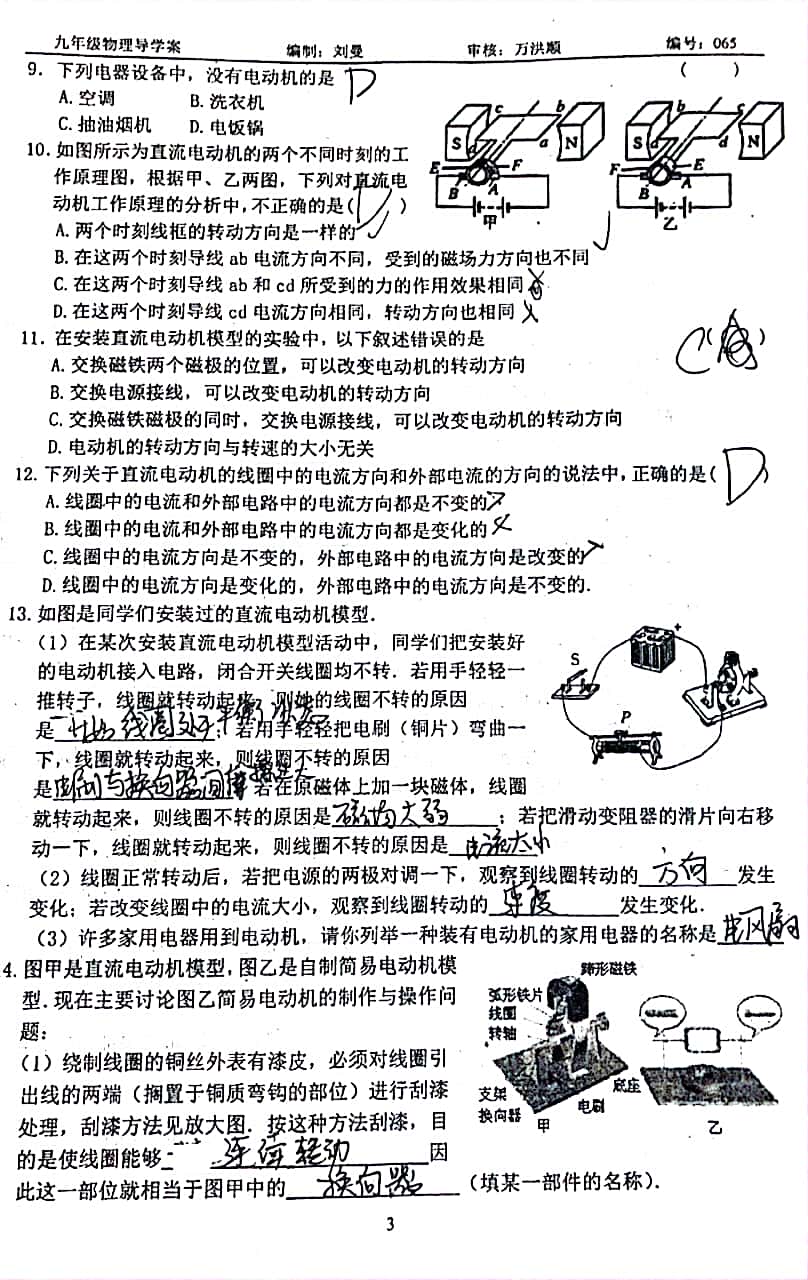 九年级物理导学案 编制：刘曼 审核：万洪顺 编号：065
9. 下列电器设备中，没有电动机的是 D （ ）
A. 空调 B. 洗衣机
C. 抽油烟机 D. 电饭锅
10. 如图所示为直流电动机的两个不同时刻的工
作原理图，根据甲、乙两图，下列对直流电
动机工作原理的分析中，不正确的是( D )
A. 两个时刻线框的转动方向是一样的 √
B. 在这两个时刻导线 ab 电流方向不同，受到的磁场力方向也不同 √
C. 在这两个时刻导线 ab 和 cd 所受到的力的作用效果相同
D. 在这两个时刻导线 cd 电流方向相同，转动方向也相同 ×
c b S d a N E F B A 甲
b c S a d N F E B A 乙
11. 在安装直流电动机模型的实验中，以下叙述错误的是 C ( )
A. 交换磁铁两个磁极的位置，可以改变电动机的转动方向
B. 交换电源接线，可以改变电动机的转动方向
C. 交换磁铁磁极的同时，交换电源接线，可以改变电动机的转动方向
D. 电动机的转动方向与转速的大小无关
12. 下列关于直流电动机的线圈中的电流方向和外部电流的方向的说法中，正确的是( D )
A. 线圈中的电流和外部电路中的电流方向都是不变的 ×
B. 线圈中的电流和外部电路中的电流方向都是变化的 ×
C. 线圈中的电流方向是不变的，外部电路中的电流方向是改变的 ×
D. 线圈中的电流方向是变化的，外部电路中的电流方向是不变的.
13. 如图是同学们安装过的直流电动机模型.
（1）在某次安装直流电动机模型活动中，同学们把安装好
的电动机接入电路，闭合开关线圈均不转. 若用手轻轻一
推转子，线圈就转动起来，则她的线圈不转的原因
是 线圈处于平衡 ；若用手轻轻把电刷（铜片）弯曲一
下，线圈就转动起来，则线圈不转的原因
是 电刷与换向器间摩擦太大 若在原磁体上加一块磁体，线圈
就转动起来，则线圈不转的原因是 磁场太弱 ；若把滑动变阻器的滑片向右移
动一下，线圈就转动起来，则线圈不转的原因是 电流太小
（2）线圈正常转动后，若把电源的两极对调一下，观察到线圈转动的 方向 发生
变化；若改变线圈中的电流大小，观察到线圈转动的 速度 发生变化.
（3）许多家用电器用到电动机，请你列举一种装有电动机的家用电器的名称是 电风扇
S + P
4. 图甲是直流电动机模型，图乙是自制简易电动机模
型. 现在主要讨论图乙简易电动机的制作与操作问
题：
（1）绕制线圈的铜丝外表有漆皮，必须对线圈引
出线的两端（搁置于铜质弯钩的部位）进行刮漆
处理，刮漆方法见放大图. 按这种方法刮漆，目
的是使线圈能够 连续转动 因
此这一部位就相当于图甲中的 换向器 （填某一部件的名称）.
蹄形磁铁
弧形铁片
线圈
转轴
支架
换向器
底座
电刷
甲 乙
3